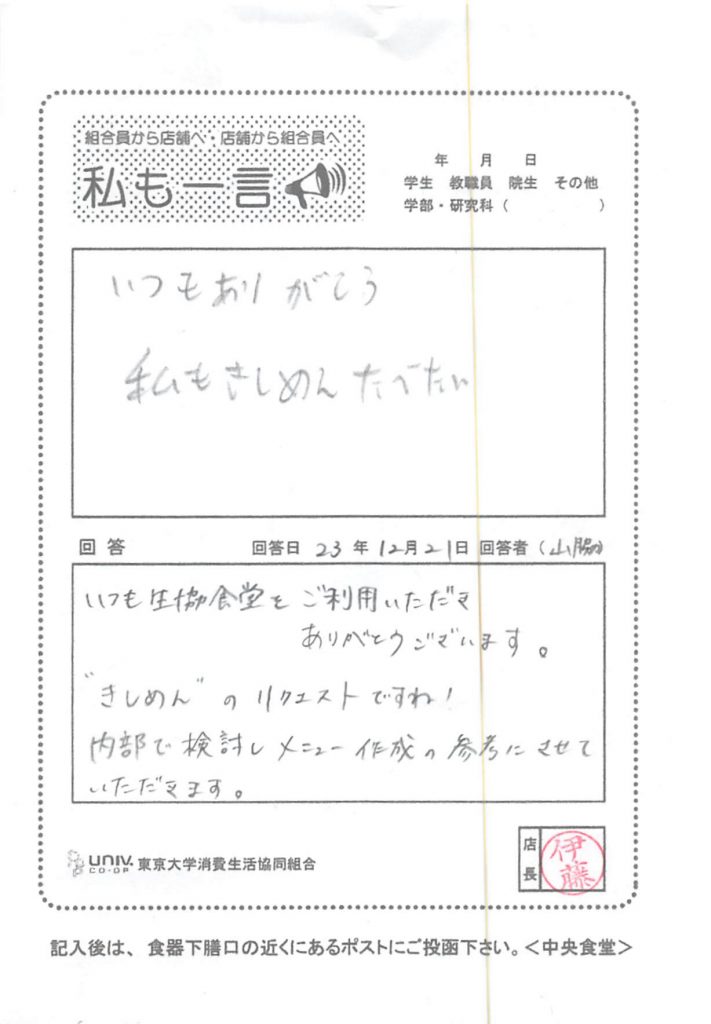 組合員から店舗へ・店舗から組合員へ
私も一言
年 月 日
学生 教職員 院生 その他
学部・研究科( )
いつもありがとう
私もきしめんたべたい
回答 回答日 23年12月21日 回答者(山脇)
いつも生協食堂をご利用いただき
ありがとうございます。
"きしめん"のリクエストですね!
内部で検討しメニュー作成の参考にさせて
いただきます。
UNIV. CO-OP 東京大学消費生活協同組合
店長 伊藤
記入後は、食器下膳口の近くにあるポストにご投函下さい。<中央食堂>